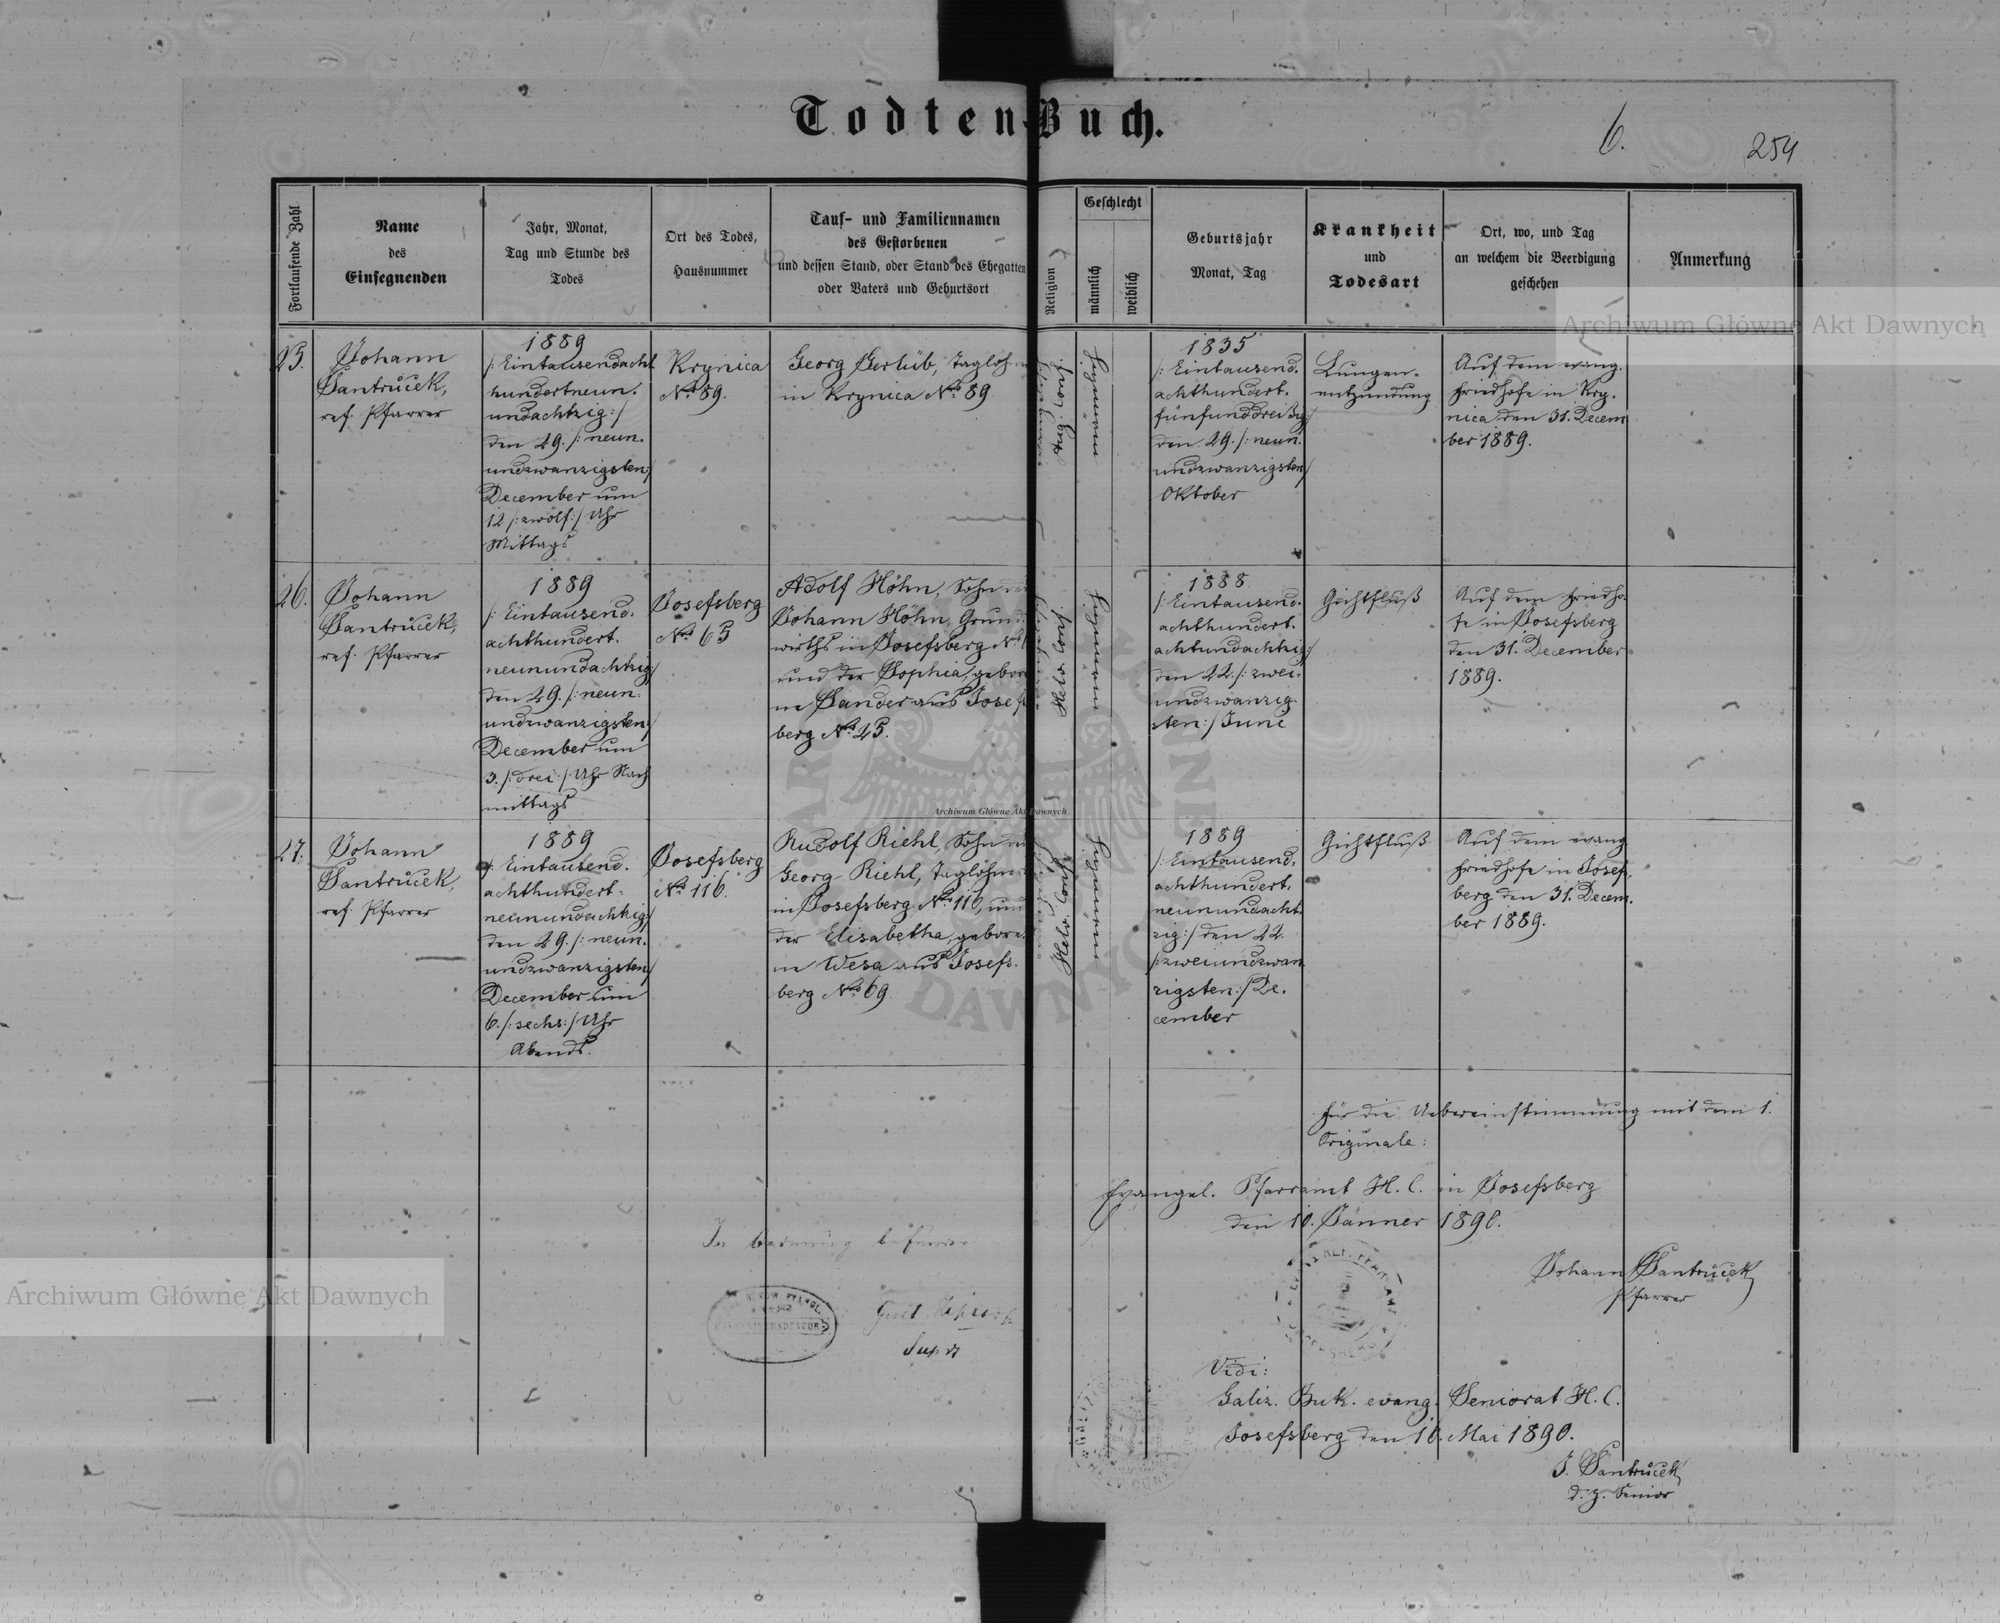 Todten-Buch.
6.
254
Fortlaufende Zahl
Name
des
Einsegnenden
Jahr, Monat,
Tag und Stunde des
Todes
Ort des Todes,
Hausnummer
Tauf- und Familiennamen
des Gestorbenen
und dessen Stand, oder Stand des Ehegatten
oder Vaters und Geburtsort
Religion
Geschlecht
männlich
weiblich
Geburtsjahr
Monat, Tag
Krankheit
und
Todesart
Ort, wo, und Tag
an welchem die Beerdigung
geschehen
Anmerkung
Archiwum Główne Akt Dawnych
25.
Johann
Santrůček,
ref. Pfarrer
1889
/: Eintausendacht
hundertneun.
undachtzig:/
den 29. /: neun.
undzwanzigsten:/
December um
12 /: zwölf:/ Uhr
Mittags
Krynica
No 89.
Georg Gerlüb, Taglöhn
in Krynica No 89
1835
/: Eintausend.
achthundert.
fünfunddreißig:/
den 29. /: neun.
undzwanzigsten:/
Oktober
Lungen.
entzündung
Auf dem evang.
Friedhofe in Kry.
nica den 31. Decem
ber 1889.
26.
Johann
Santrůček,
ref. Pfarrer
1889
/: Eintausend.
achthundert.
neunundachtzig:/
den 29. /: neun.
undzwanzigsten:/
December um
3. /: drei:/ Uhr Nach
mittags
Josefsberg
No 65
Adolf Höhn, Sohn
Johann Höhn, Grund
wirths in Josefsberg No
und der Sophia, gebore
ne Sander aus Josefs
berg No 25.
Helv. Conf.
1888
/: Eintausend.
achthundert.
achtundachtzig:/
den 22. /: zwei.
undzwanzig.
sten:/ Juni
Gichtfluß
Auf dem Friedho.
fe in Josefsberg
den 31. December
1889.
27.
Johann
Santrůček,
ref. Pfarrer
1889
/: Eintausend.
achthundert.
neunundachtzig:/
den 29. /: neun.
undzwanzigsten:/
December um
6. /: sechs:/ Uhr
Abends.
Josefsberg
No 116.
Rudolf Riehl, Sohn
Georg Riehl, Taglöhn
in Josefsberg No 116, und
der Elisabetha, gebore.
ne Wesa aus Josefs.
berg No 69
Helv. Conf.
1889
/: Eintausend.
achthundert.
neunundacht.
zig:/ den 22.
/: zweiundzwan
zigsten:/ De.
cember
Gichtfluß
Auf dem evang
Friedhofe in Josef.
berg den 31. Decem.
ber 1889.
Archiwum Główne Akt Dawnych
Für die Uebereinstimmung mit dem 1.
Originale:
Evangel. Pfarramt H. C. in Josefsberg
den 10. Jänner 1890.
Johann Santrůček
Pfarrer
Archiwum Główne Akt Dawnych
Vidi:
Galiz. Buk. evang. Seniorat H. C.
Josefsberg den 10. Mai 1890.
J. Santrůček
d. z. Senior